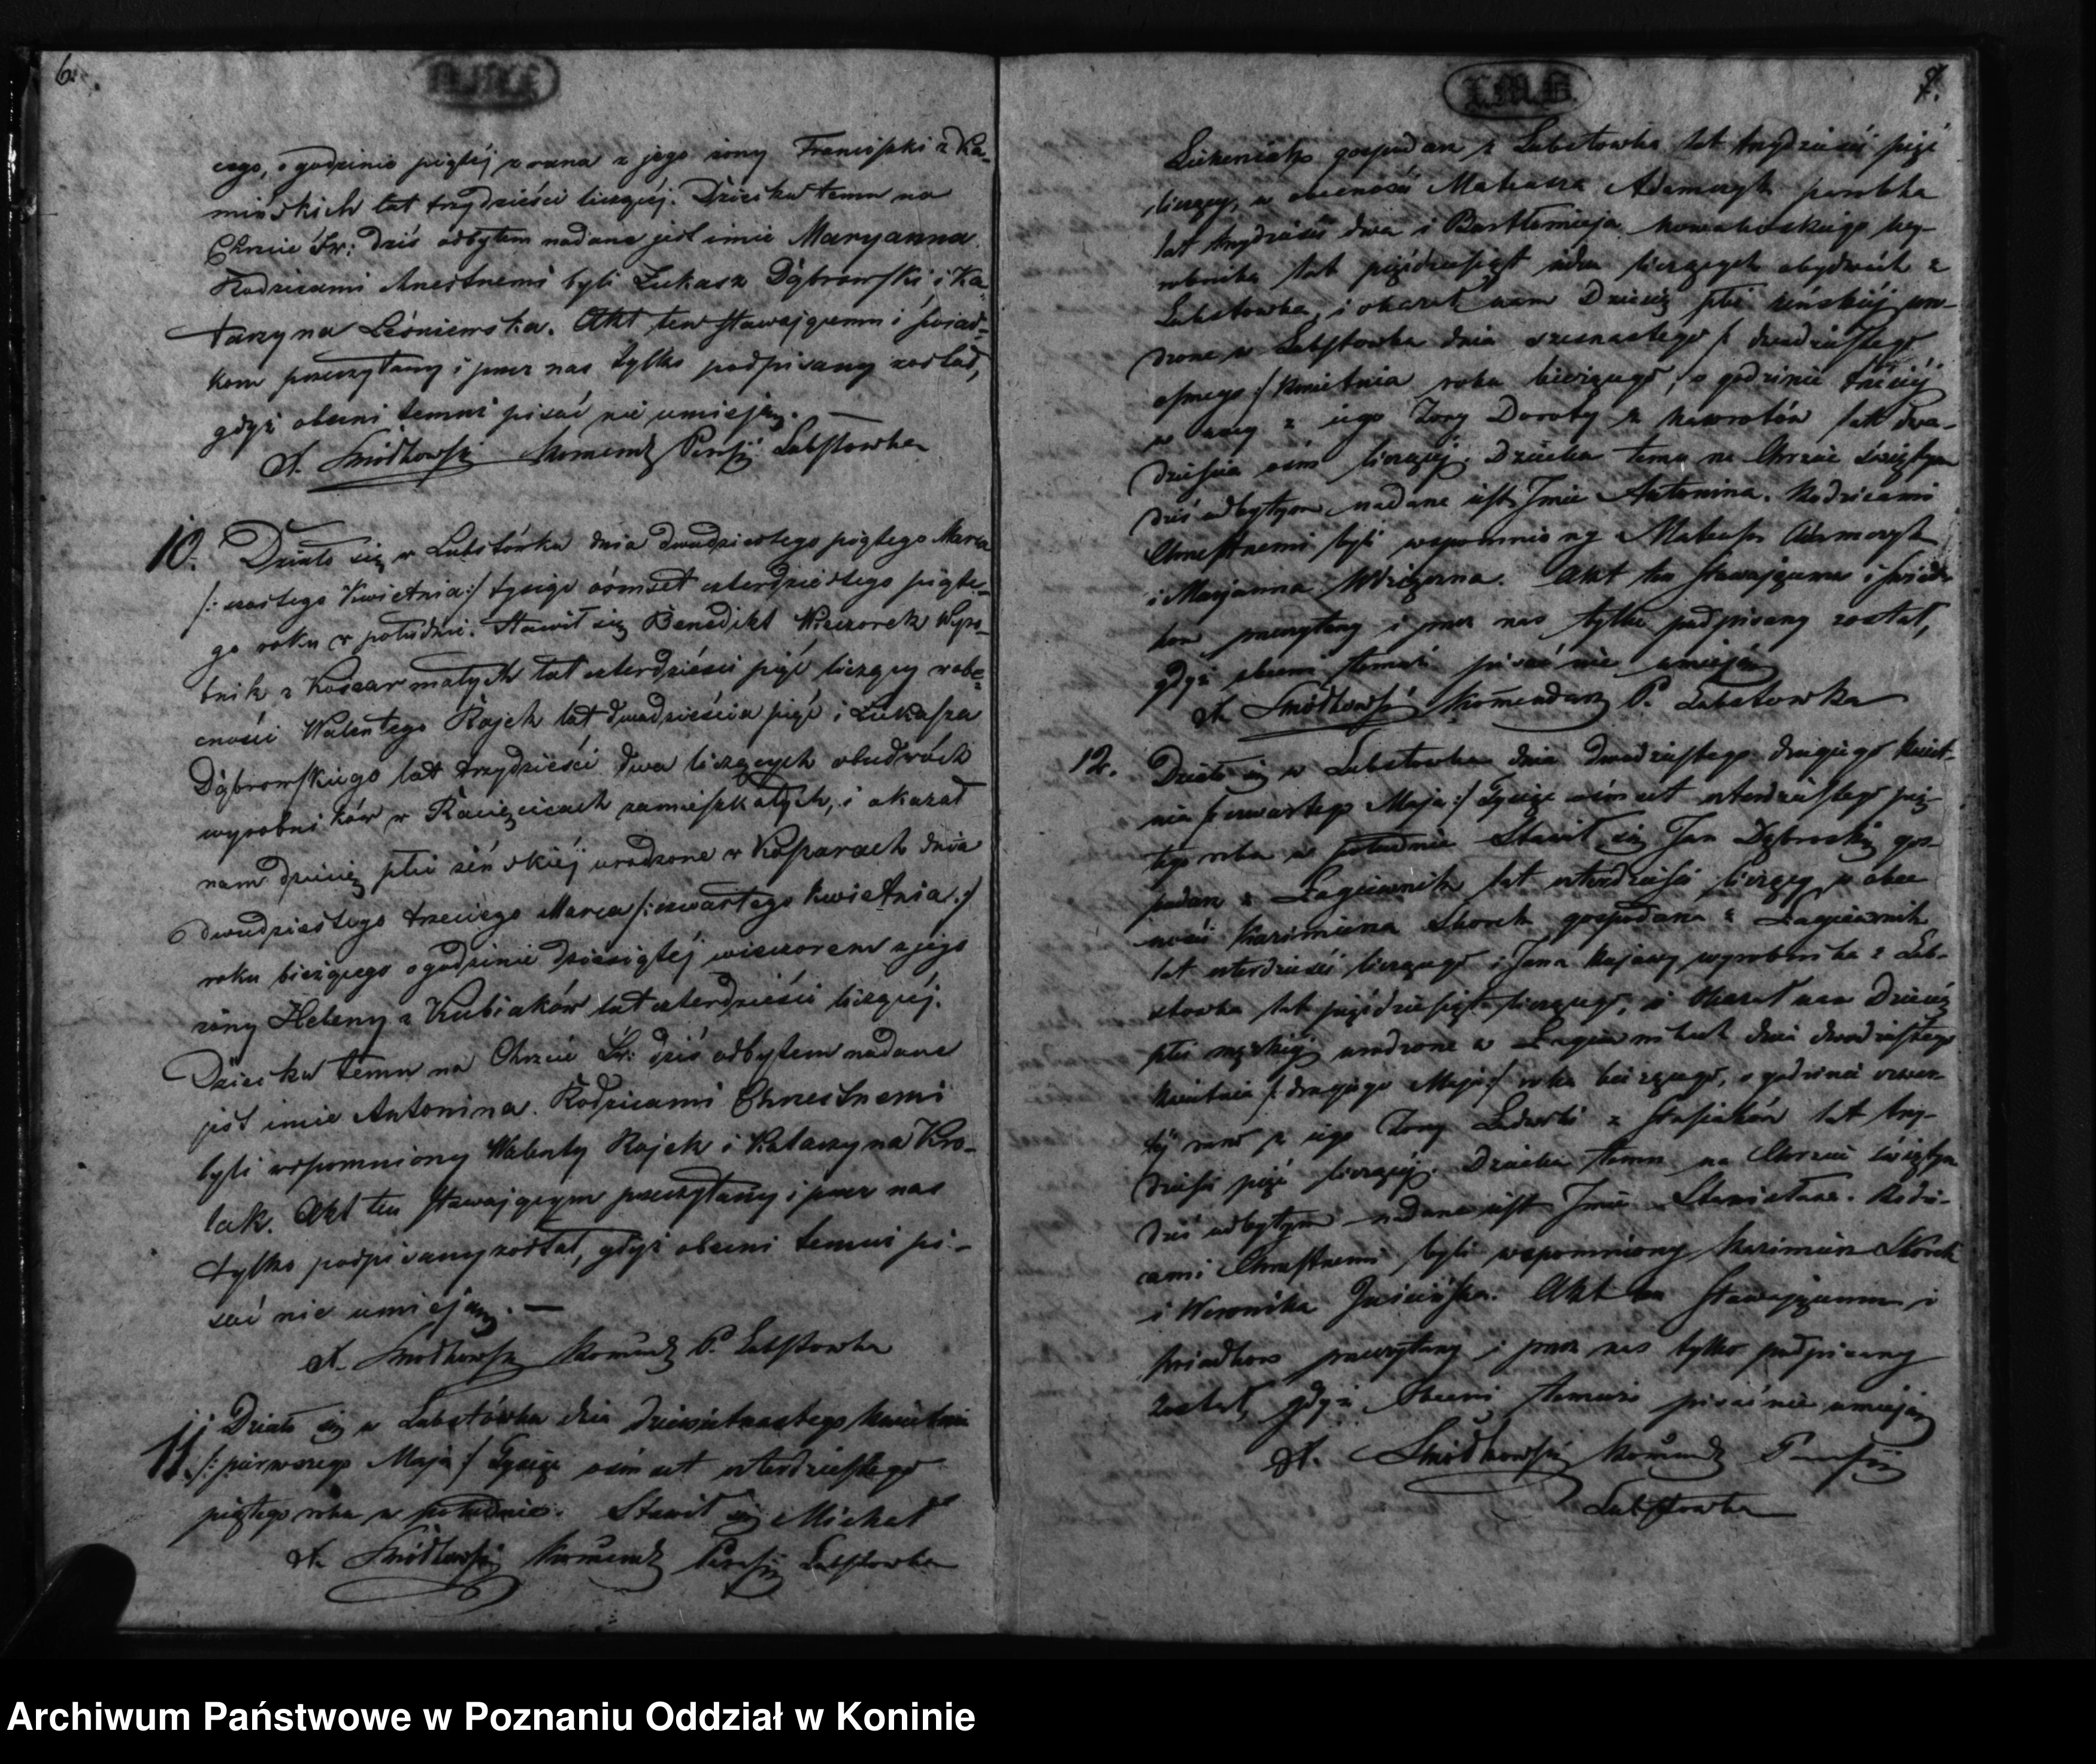 6.
czego, o godzinie piątéj z rana z jego żony Franciszki z Ka-
mińskich lat trzydzieści liczącéj. Dziecku temu na
Chrzcie Św: dziś odbytem nadane jest imie Maryanna.
Rodzicami chrzestnemi byli Łukasz Dąbrowski i Ka-
tarzyna Leśniewska. Akt ten stawającemu i świad-
kom przeczytany i przez nas tylko podpisany został,
gdyż obecni temuż pisać nie umieją. —
Komend Parafij Lubstowka
10. Działo się w Lubstówku dnia dwudziestego piątego Marca
/: szóstego Kwietnia :/ tysiąc ośmset czterdziestego piąte-
go roku w południe. Stawił się Benedikt Wieczorek Wyro-
bnik z Koszar małych lat czterdzieści pięć liczący w obe-
cności Walentego Rajek lat dwadzieścia pięć i Łukasza
Dąbrowskiego lat trzydzieści dwa liczących obudwóch
wyrobników w Racięcicach zamieszkałych, i okazał
nam dziecię płci żeńskiéj urodzone w Koszarach dnia
dwudziestego trzeciego Marca /: czwartego Kwietnia :/
roku bieżącego o godzinie dziesiątéj wieczorem z jego
żony Heleny z Kubiaków lat czterdzieści liczącéj.
Dziecku temu na Chrzcie Św: dziś odbytem nadane
jest imie Antonina. Rodzicami Chrzestnemi
byli wspomniony Walenty Rajek i Katarzyna Kro-
lak. Akt ten stawającym przeczytany i przez nas
tylko podpisany został, gdyż obecni temuż pi-
sać nie umieją. —
Komend P. Lubstowka
11. Działo się w Lubstówku dnia dziewiętnastego Kwietnia
/: pierwszego Maja :/ Tysiąc ośmset czterdziestego
piątego roku w południe. Stawił się Michał
Komend Parafij Lubstowka
7.
gospodarz z Lubstowka lat trzydzieści pięć
liczący, w obecności Mateusza Adamczyk parobka
lat trzydzieści dwa i Bartłomieja Nowakoskiego wy-
robnika lat pięćdziesiąt liczących obydwóch z
Lubstowka, i okazał nam Dziecię płci żeńskiéj uro-
dzone w Lubstowku dnia szesnastego /: dwudziestego
osmego :/ Kwietnia roku bieżącego, o godzinie trzeciéj
w nocy z iego Żony Doroty z Nawrotów lat dwa-
dzieścia ośm liczącéj. Dziecku temu na Chrzcie świętym
dziś odbytym nadane iest Imie Antonina. Rodzicami
Chrzestnemi byli wspomniony Mateusz Adamczyk
i Maryanna. Akt ten stawającemu i świad-
kom przeczytany i przez nas tylko podpisany został,
gdyż obecni temuż pisać nie umieją
Komendarz P. Lubstowka
12. Działo się w Lubstowku dnia dwudziestego drugiego Kwiet-
nia /: czwartego Maja :/ Tysiąc ośmset czterdziestego pią-
tego roku w południe Stawił się Jan Dąbroski gos-
podarz z Łagiewnik lat czterdzieści liczący w obec
ności Kazimierza Skorek gospodarza z Łagiewnik
lat czterdzieści liczącego i Jana Kujawy wyrobnika z Lub-
stowka lat pięćdziesiąt liczącego, i Okazał nam Dziecię
płci męzkiéj urodzone w Łagiewnikach dnia dwudziestego
Kwietnia /: drugiego Maja :/ roku bieżącego, o godzinie czwar-
téj rano z iego Żony Ludwiki z Stasiaków lat trzy-
dzieści pięć liczącéj. Dziecku temu na Chrzcie świętym
dziś odbytym nadane iest Imie Stanisław. Rodzi-
cami Chrzestnemi byli wspomniony Kazimierz Skorek
i Weronika. Akt ten stawającemu i
świadkom przeczytany i przez nas tylko podpisany
został, gdyż Obecni temuż pisać nie umieją
Komend Parafij
Lubstowka
Archiwum Państwowe w Poznaniu Oddział w Koninie